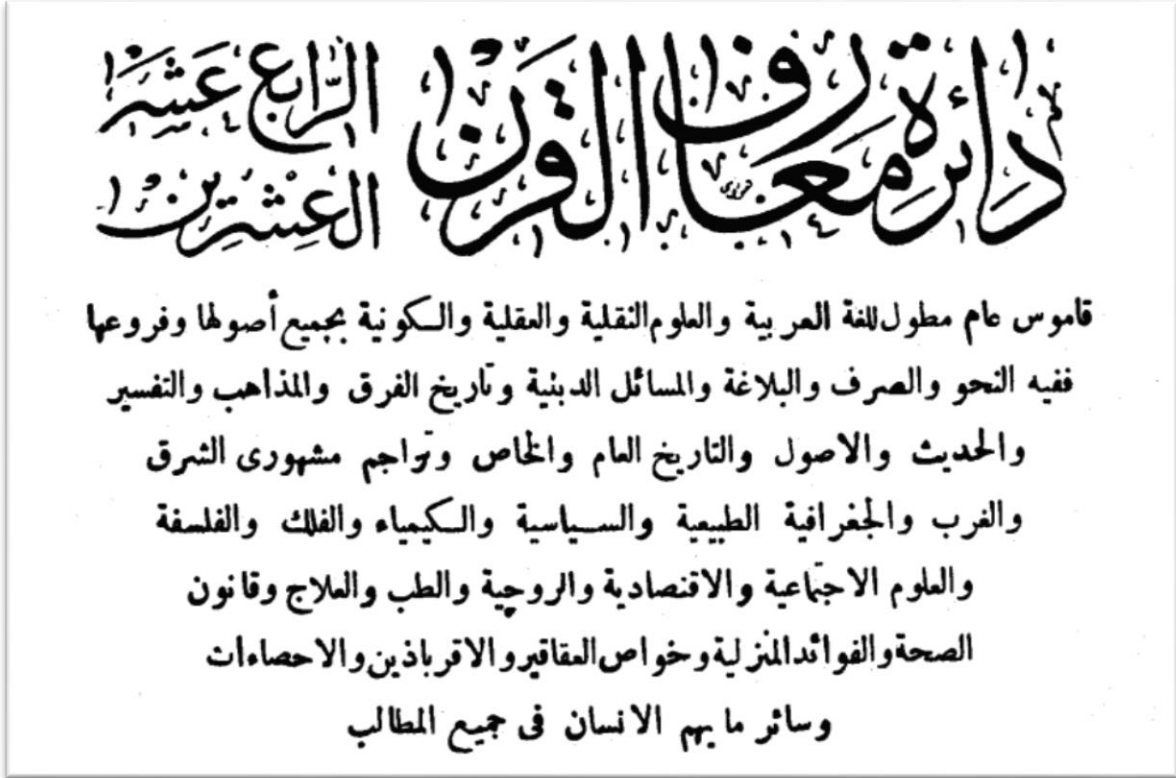 دائرة معارف القرن
الرابع عشر
العشرين
قاموس عام مطول للغة العربية والعلوم النقلية والعقلية والكونية بجميع أصولها وفروعها
ففيه النحو والصرف والبلاغة والمسائل الدينية وتاريخ الفرق والمذاهب والتفسير
والحديث والاصول والتاريخ العام والخاص وتراجم مشهورى الشرق
والغرب والجغرافية الطبيعية والسياسية والكيمياء والفلك والفلسفة
والعلوم الاجتماعية والاقتصادية والروحية والطب والعلاج وقانون
الصحة والفوائد المنزلية وخواص العقاقير والاقرباذين والاحصاءات
وسائر ما يهم الانسان فى جميع المطالب